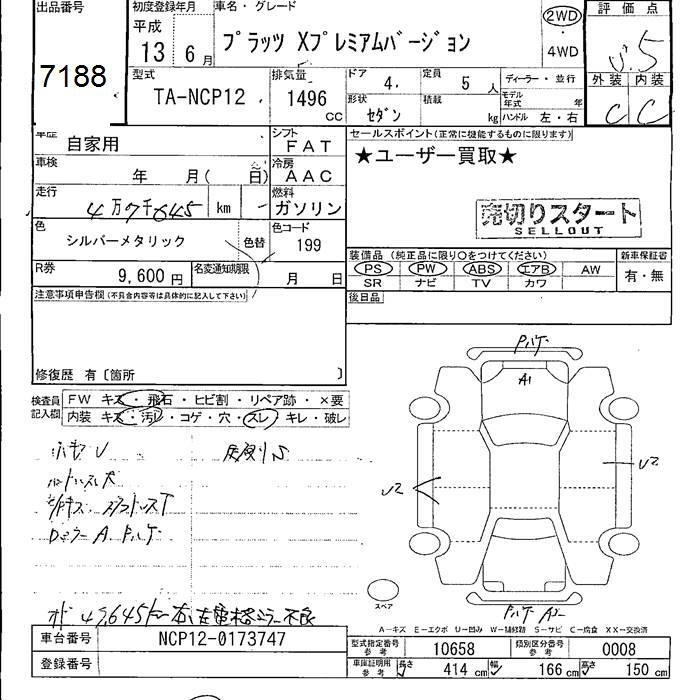 出品番号
7188
初度登録年月
平成
13年 6月
車名・グレード
プラッツ Xプレミアムバージョン
2WD
・
4WD
評価点
外装 内装
C C
型式
TA-NCP12
排気量
1496
CC
ドア
4
定員
5 人
形状
セダン
積載
kg
ディーラー・並行
モデル年式 年
ハンドル 左・右
車歴
自家用
シフト
FAT
車検
年 月( 日)
冷房
AAC
走行
4万9千645 km
燃料
ガソリン
色
シルバーメタリック
色替
色コード
199
R券
9,600 円
名変通知期限
月 日
セールスポイント(正常に機能するものに限ります)
★ユーザー買取★
売切りスタート
SELLOUT
装備品(純正品に限り○をつけてください)
PS PW ABS エアB AW
SR ナビ TV カワ
新車保証書
有・無
後日品
注意事項申告欄(不具合内容等は具体的に記入して下さい)
修復歴 有〔箇所 〕
検査員
記入欄
FW キズ・飛石・ヒビ割・リペア跡・×要
内装 キズ・汚レ・コゲ・穴・スレ・キレ・破レ
Pハゲ
A1
U2
U2
Pハゲ
スペア
A－キズ E－エクボ U－凹み W－補修跡 S－サビ C－腐食 XX－交換済
車台番号
NCP12-0173747
登録番号
型式指定番号
参考
10658
類別区分番号
参考
0008
車庫証明用
参考
長さ
414 cm
幅
166 cm
高さ
150 cm